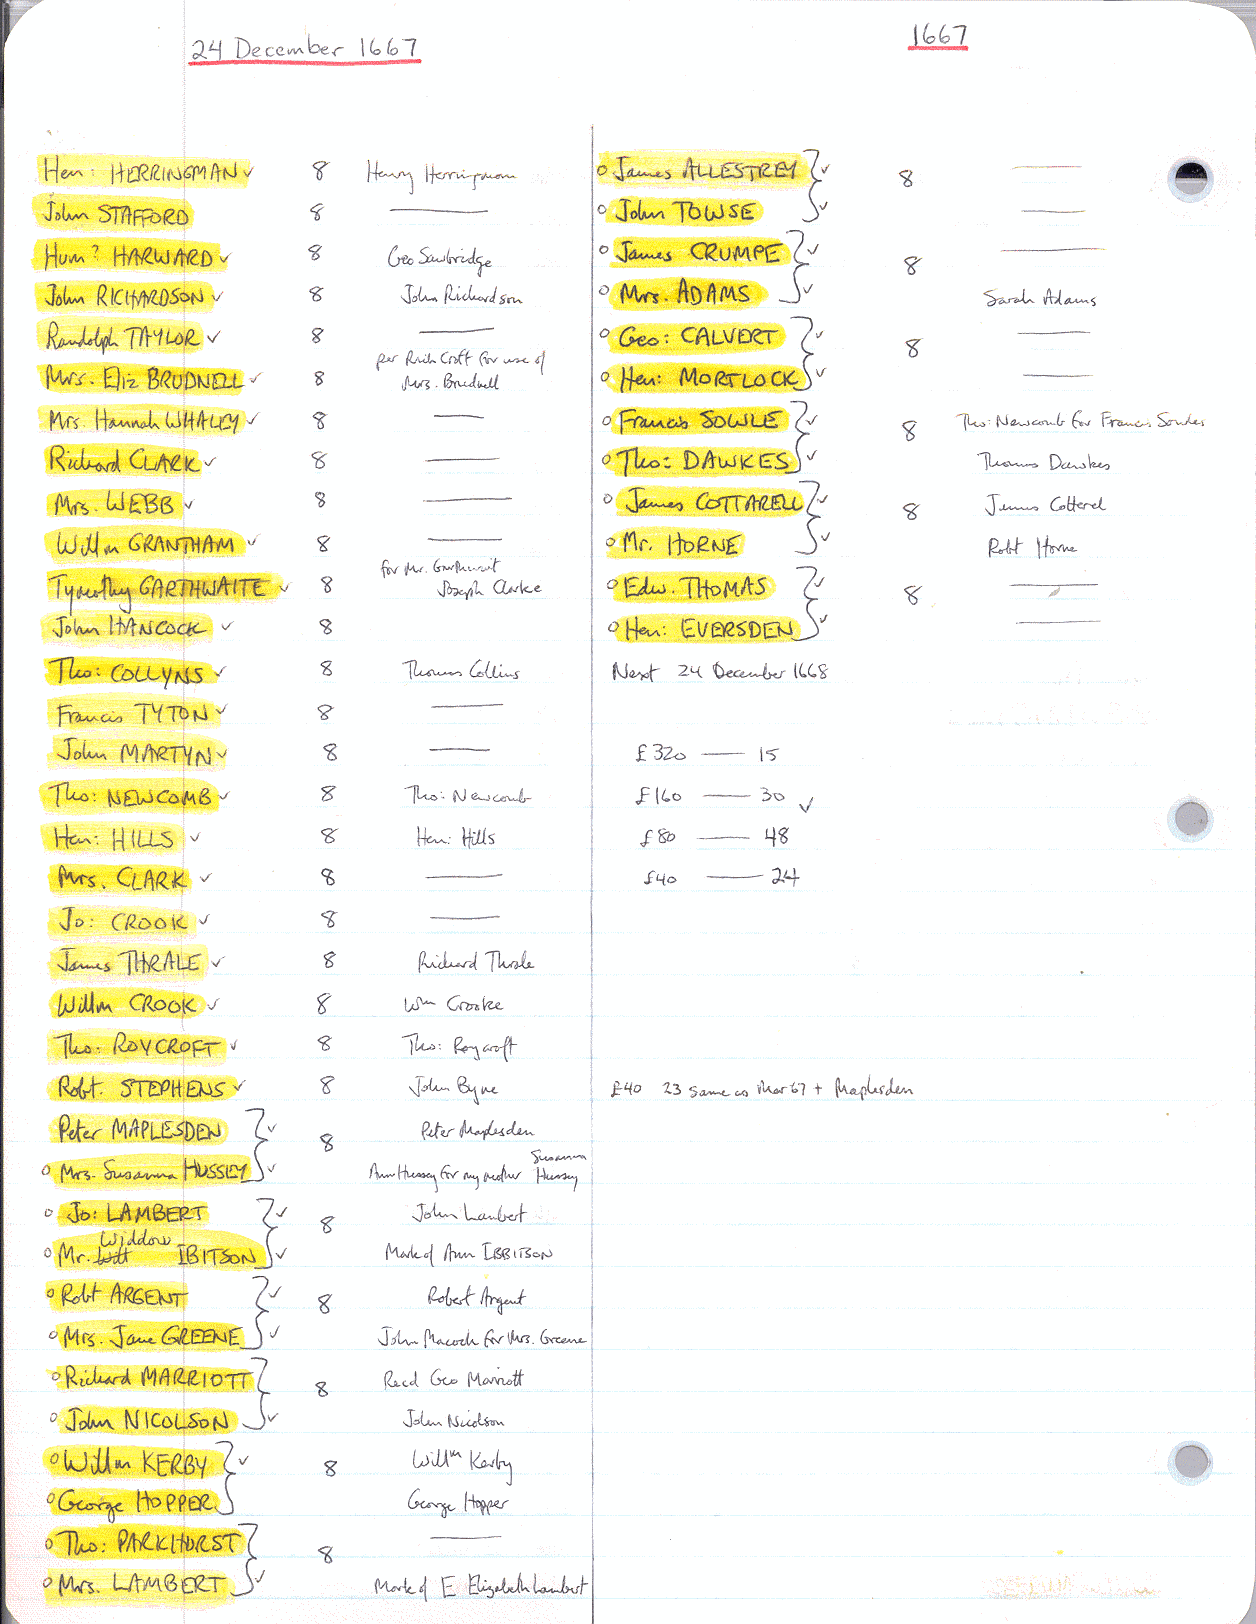 24 December 1667
Hen: HERRINGMAN ✓ 8 Henry Herringman
John STAFFORD 8 ———
Hum? HARWARD ✓ 8 Geo Sawbridge
John RICHARDSON ✓ 8 John Richardson
Randolph TAYLOR ✓ 8 ———
per Rich Croft for use of
Mrs. Eliz BRUDNELL ✓ 8 Mrs. Brudnell
Mrs. Hannah WHALEY ✓ 8 ———
Richard CLARK ✓ 8 ———
Mrs. WEBB ✓ 8 ———
Willm GRANTHAM ✓ 8 ———
for Mr. Garthwait
Tymothy GARTHWAITE ✓ 8 Joseph Clarke
John HANCOCK ✓ 8
Tho: COLLYNS ✓ 8 Thomas Collins
Francis TYTON ✓ 8 ———
John MARTYN ✓ 8 ———
Tho: NEWCOMB ✓ 8 Tho: Newcomb
Hen: HILLS ✓ 8 Hen: Hills
Mrs. CLARK ✓ 8 ———
Jo: CROOK ✓ 8 ———
James THRALE ✓ 8 Richard Thrale
Willm CROOK ✓ 8 Wm Crooke
Tho: ROYCROFT ✓ 8 Tho: Roycroft
Robt. STEPHENS ✓ 8 John Byne
Peter MAPLESDEN ✓ 8 Peter Maplesden
Susanna
Mrs. Susanna HUSSEY ✓ Ann Hussey for my mother Hussey
Jo: LAMBERT ✓ 8 John Lambert
Widdow
Mr. Will IBITSON ✓ Mark of Ann IBBITSON
Robt ARGENT ✓ 8 Robert Argent
Mrs. Jane GREENE ✓ John Macock for Mrs. Greene
Richard MARRIOTT 8 Recd Geo Marriott
John NICOLSON ✓ John Nicolson
Willm KERBY ✓ 8 Willm Kerby
George HOPPER George Hopper
Tho: PARKHURST 8 ———
Mrs. LAMBERT ✓ Mark of E Elizabeth Lambert
1667
James ALLESTREY ✓ 8 ———
John TOWSE ✓ ———
James CRUMPE ✓ 8 ———
Mrs. ADAMS ✓ Sarah Adams
Geo: CALVERT ✓ 8 ———
Hen: MORTLOCK ✓ ———
Francis SOWLE ✓ 8 Tho: Newcomb for Francis Sowles
Tho: DAWKES ✓ Thomas Dawkes
James COTTARELL ✓ 8 James Cotterel
Mr. HORNE ✓ Robt Horne
Edw. THOMAS ✓ 8 ———
Hen: EVERSDEN ✓ ———
Next 24 December 1668
£320 —— 15
£160 —— 30 ✓
£80 —— 48
£40 —— 24
£40 23 same as Mar 67 + Maplesden